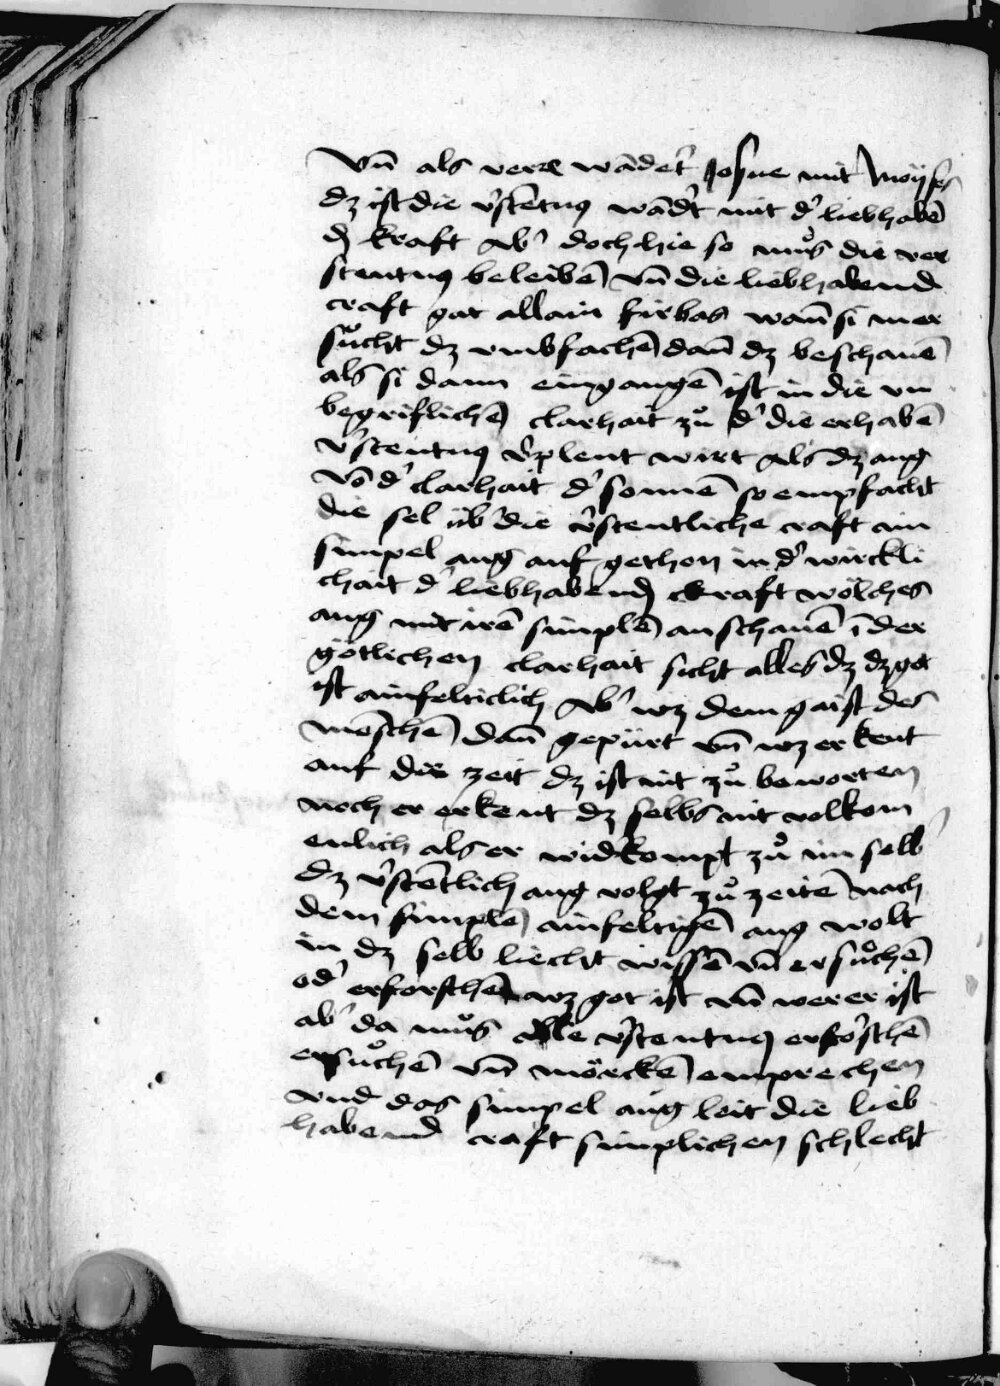 Vn̄ als verr wādet᷑ Josue mit Moÿses
dz ist die v᷑stētnuß wādt᷑ mit d᷑ liebhabē
dē kraft Ab᷑ doch hie so muͦß die ver
stentnuß beleibē vn̄ die liebhabend
craft gat allain firbas wan̄ si mer
suͦcht dz vmbfachē dan̄ dz beschauē
als si dann eingangē ist in die vn
begriflichē clarhait zuͦ d᷑ die erhabē
v᷑stentnuß v᷑plent wirt Als dz aug
vō d᷑ clarhait d᷑ sonnē so empfacht
die sel üb᷑ die v᷑stentliche craft ain
simpel aug auf gethon in d᷑ wirckli
chait d᷑ liebhabendē ckraft wölches
aug mit irē simplē anschauē ī der
götlichen clarhait sicht alles dz dz got
ist ainfelticlich Ab᷑ wz dem gaist des
mēschē dan̄ gepürt vn̄ wz er kent
auf die zeit dz ist nit zuͦ beworten
noch er erkent dz selbs nit volkom
enlich als er widkompt zuͦ im selb
dz v᷑stētlich aug volgt zuͦ zeitē nach
dem simplē ainfeltigē aug wolt
in dz selb liecht wissē vn̄ ersuͦchē
od᷑ erforschē wz got ist vn̄ wer er ist
ab᷑ da muͦß alle v᷑stentnuß erforschē
ersuͦchē vn̄ mörckē emprechen
vnd das simpel aug leit die lieb
habend craft simplichen schlecht